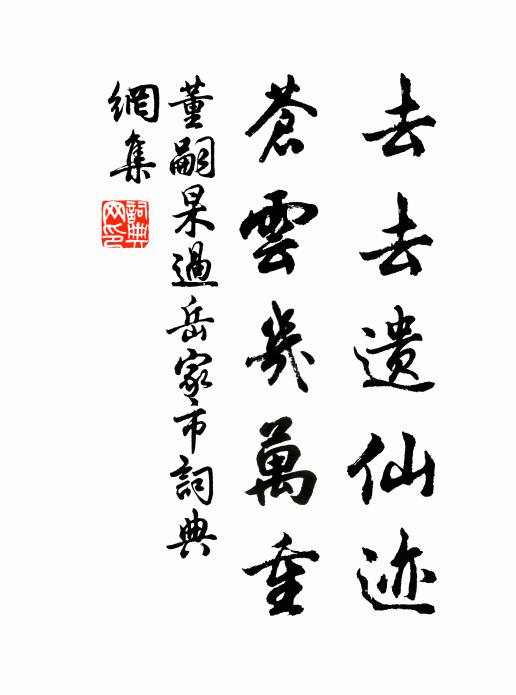 去去遗仙迹
蒼雲幾萬重
董嗣杲過岳家市詞典
網集
詞典
网印